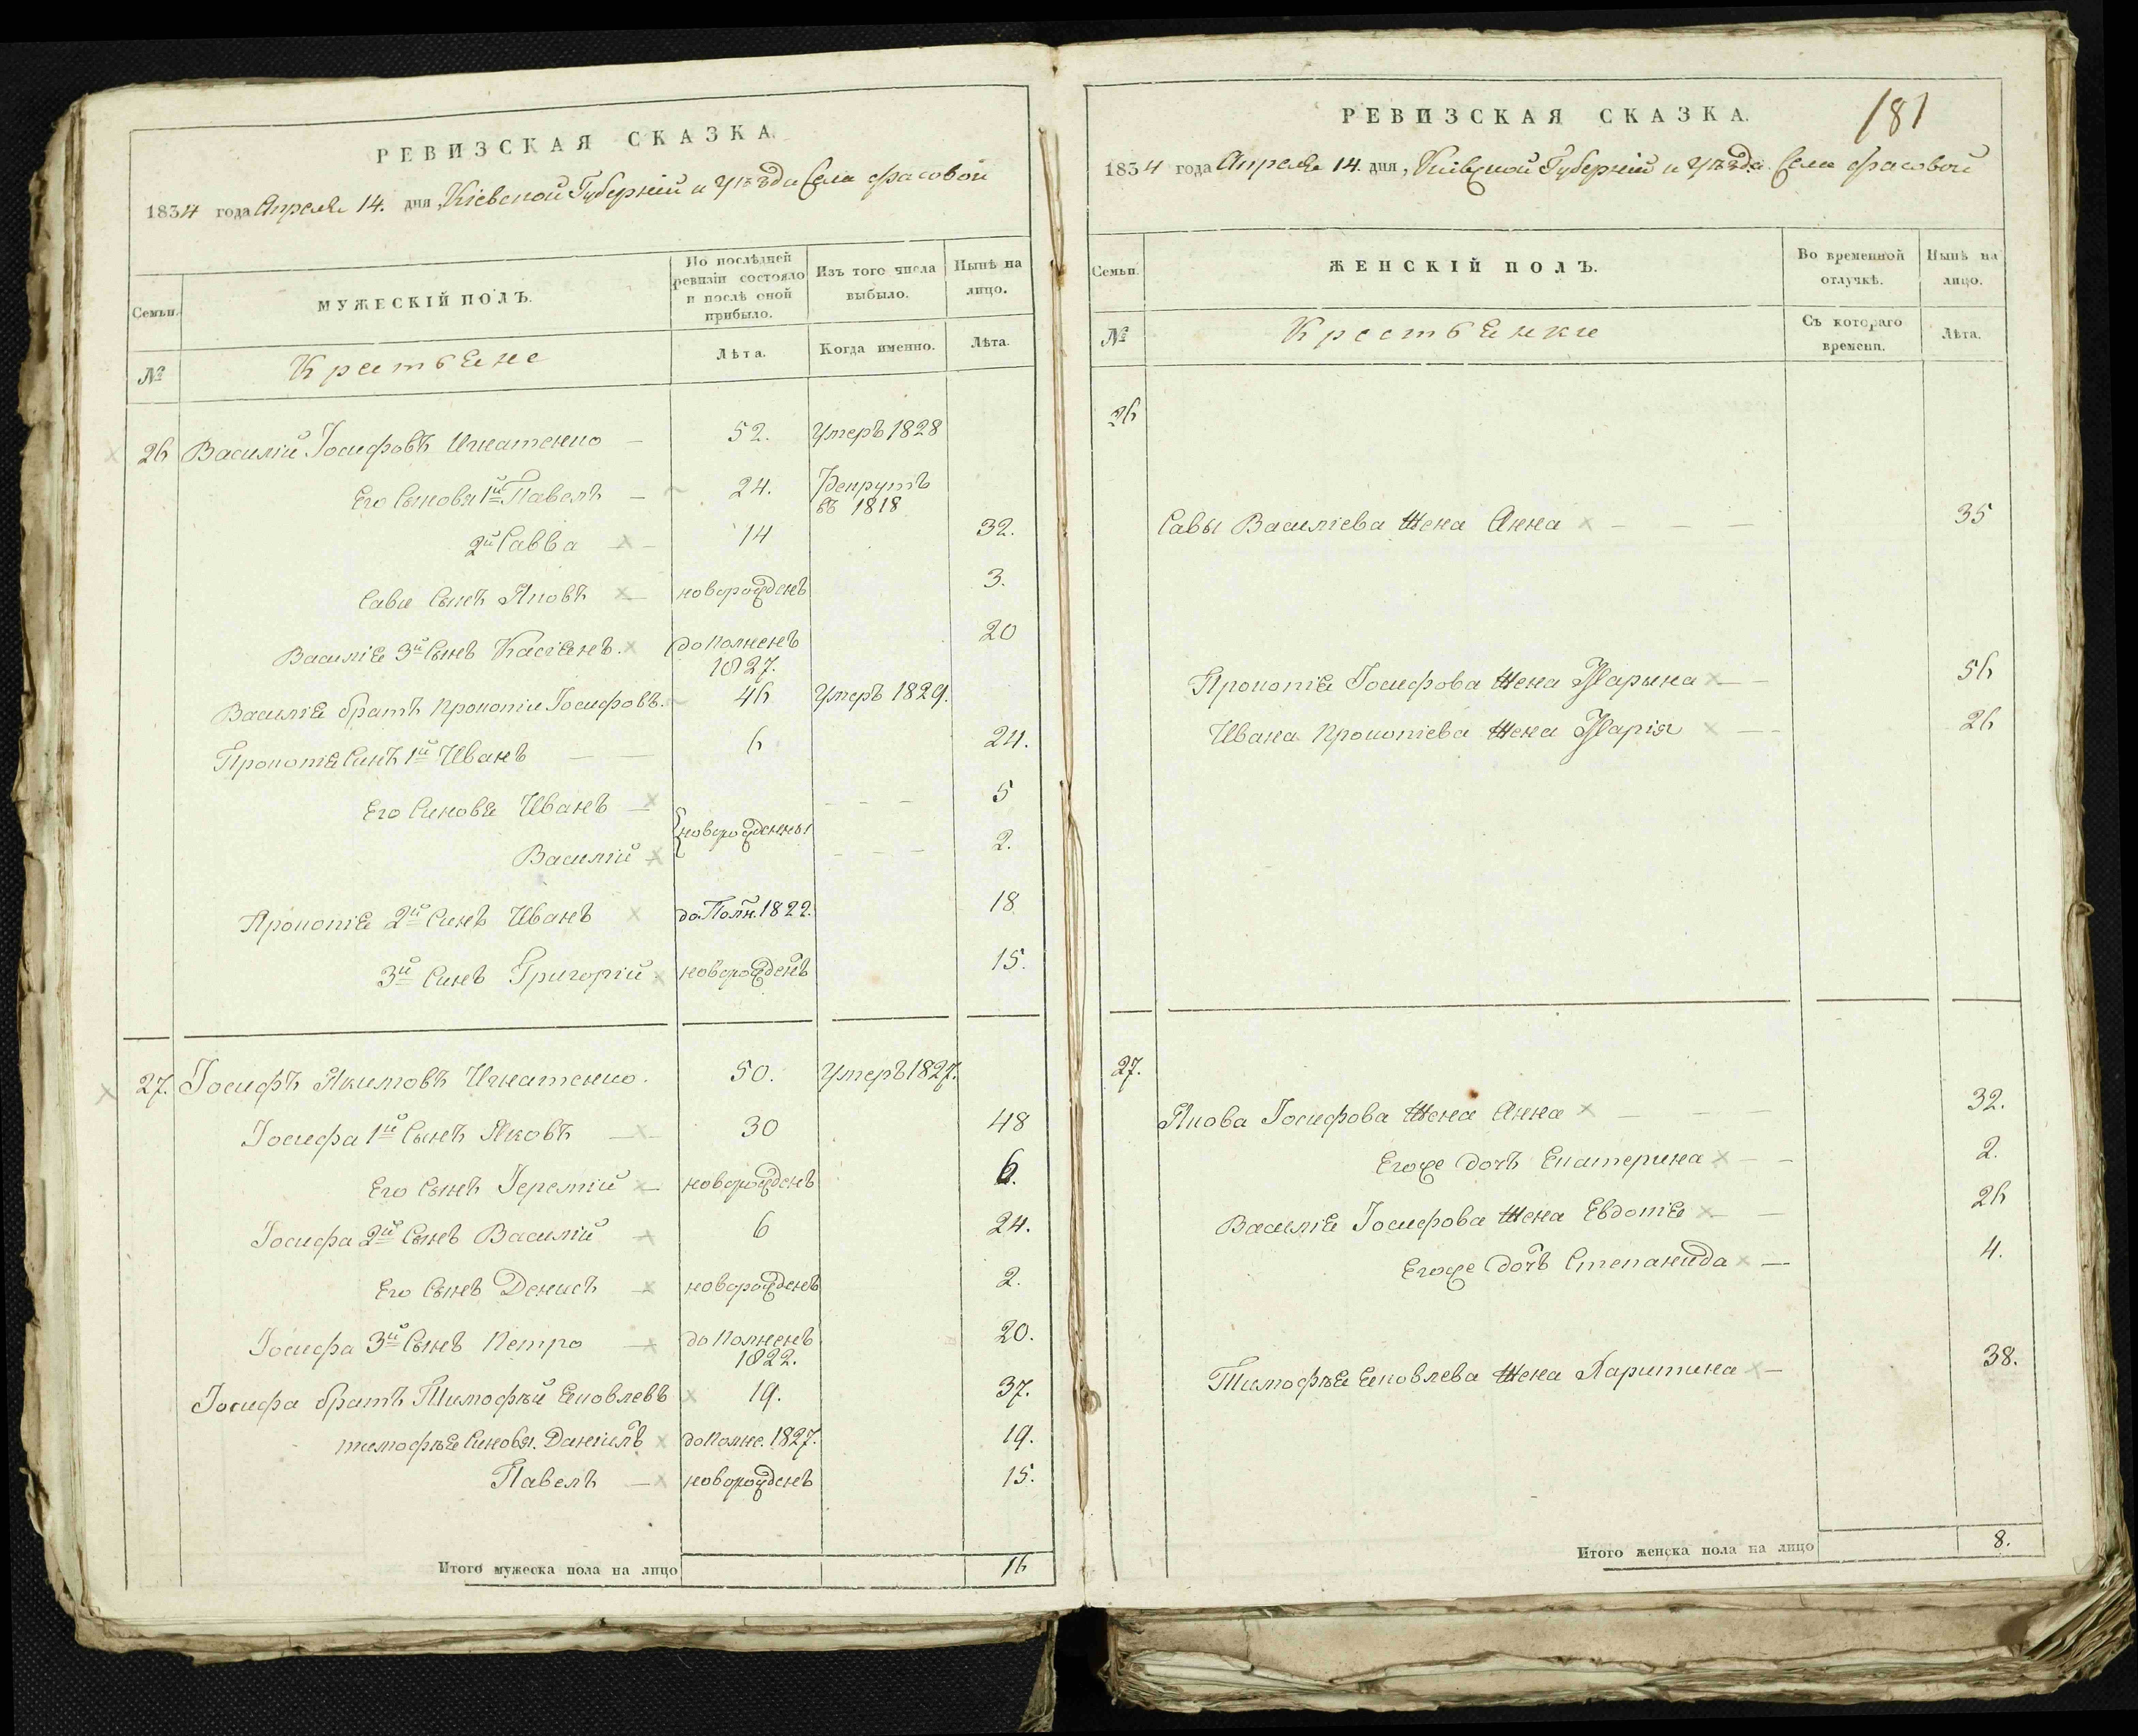 РЕВИЗСКАЯ СКАЗКА.
1834 года Апреля 14. дня, Кіевской Губерніи и уѣзда Села Фасовой
Семьи.
МУЖЕСКІЙ ПОЛЪ.
По послѣдней ревизіи состояло и послѣ оной прибыло.
Изъ того числа выбыло.
Нынѣ на лицо.
№
Крестьяне
Лѣта.
Когда именно.
Лѣта.
26 Василій Іосифовъ Игнатенко — 52. Умеръ 1828
Его Сыновя 1й Павелъ — 24. Рекрутъ
въ 1818
2й Савва — 14 32.
Савы Сынъ Яковъ — новорожденъ 3.
Василія 3й Сынъ Касіянъ. дополненъ 20
1827.
Василія братъ Прокопій Іосифовъ. 46 Умеръ 1829.
Прокопія Синъ 1й Иванъ — — 6 24.
Его Синовя Иванъ — 5
новорожденны
Василій 2.
Прокопія 2й Синъ Иванъ до Полн. 1822. 18
3й Синъ Григорій новорожденъ 15.
27. Іосифъ Якимовъ Игнатенко. 50. Умеръ 1827.
Іосифа 1й Сынъ Яковъ — 30 48
Его Сынъ Іеремій — новорожденъ 6.
Іосифа 2й Сынъ Василій 6 24.
Его Сынъ Денисъ новорожденъ 2.
Іосифа 3й Сынъ Петро до Полненъ 20.
1822.
Іосифа братъ Тимофѣй Яковлевъ 19. 37.
тимофѣя Синовя. Даніилъ до Полне. 1827. 19.
Павелъ — новорожденъ 15.
Итого мужеска пола на лицо 16
181
РЕВИЗСКАЯ СКАЗКА.
1834 года Апреля 14. дня, Кіевской Губерніи и уѣзда Села Фасовой
Семьи.
ЖЕНСКІЙ ПОЛЪ.
Во временной отлучкѣ.
Нынѣ на лицо.
№
Крестьянки
Съ котораго времени.
Лѣта.
26
Савы Василіева Жена Анна — — 35
Прокопія Іосифова Жена Марына — 56
Ивана Прокопіева Жена Марія — 26
27.
Якова Іосифова Жена Анна — — — 32.
Егоже дочъ Екатерина — 2.
Василія Іосифова Жена Евдокія — 26
Егоже Дочъ Степанида — 4.
Тимофѣя Яковлева Жена Харитина — 38.
Итого женска пола на лицо 8.